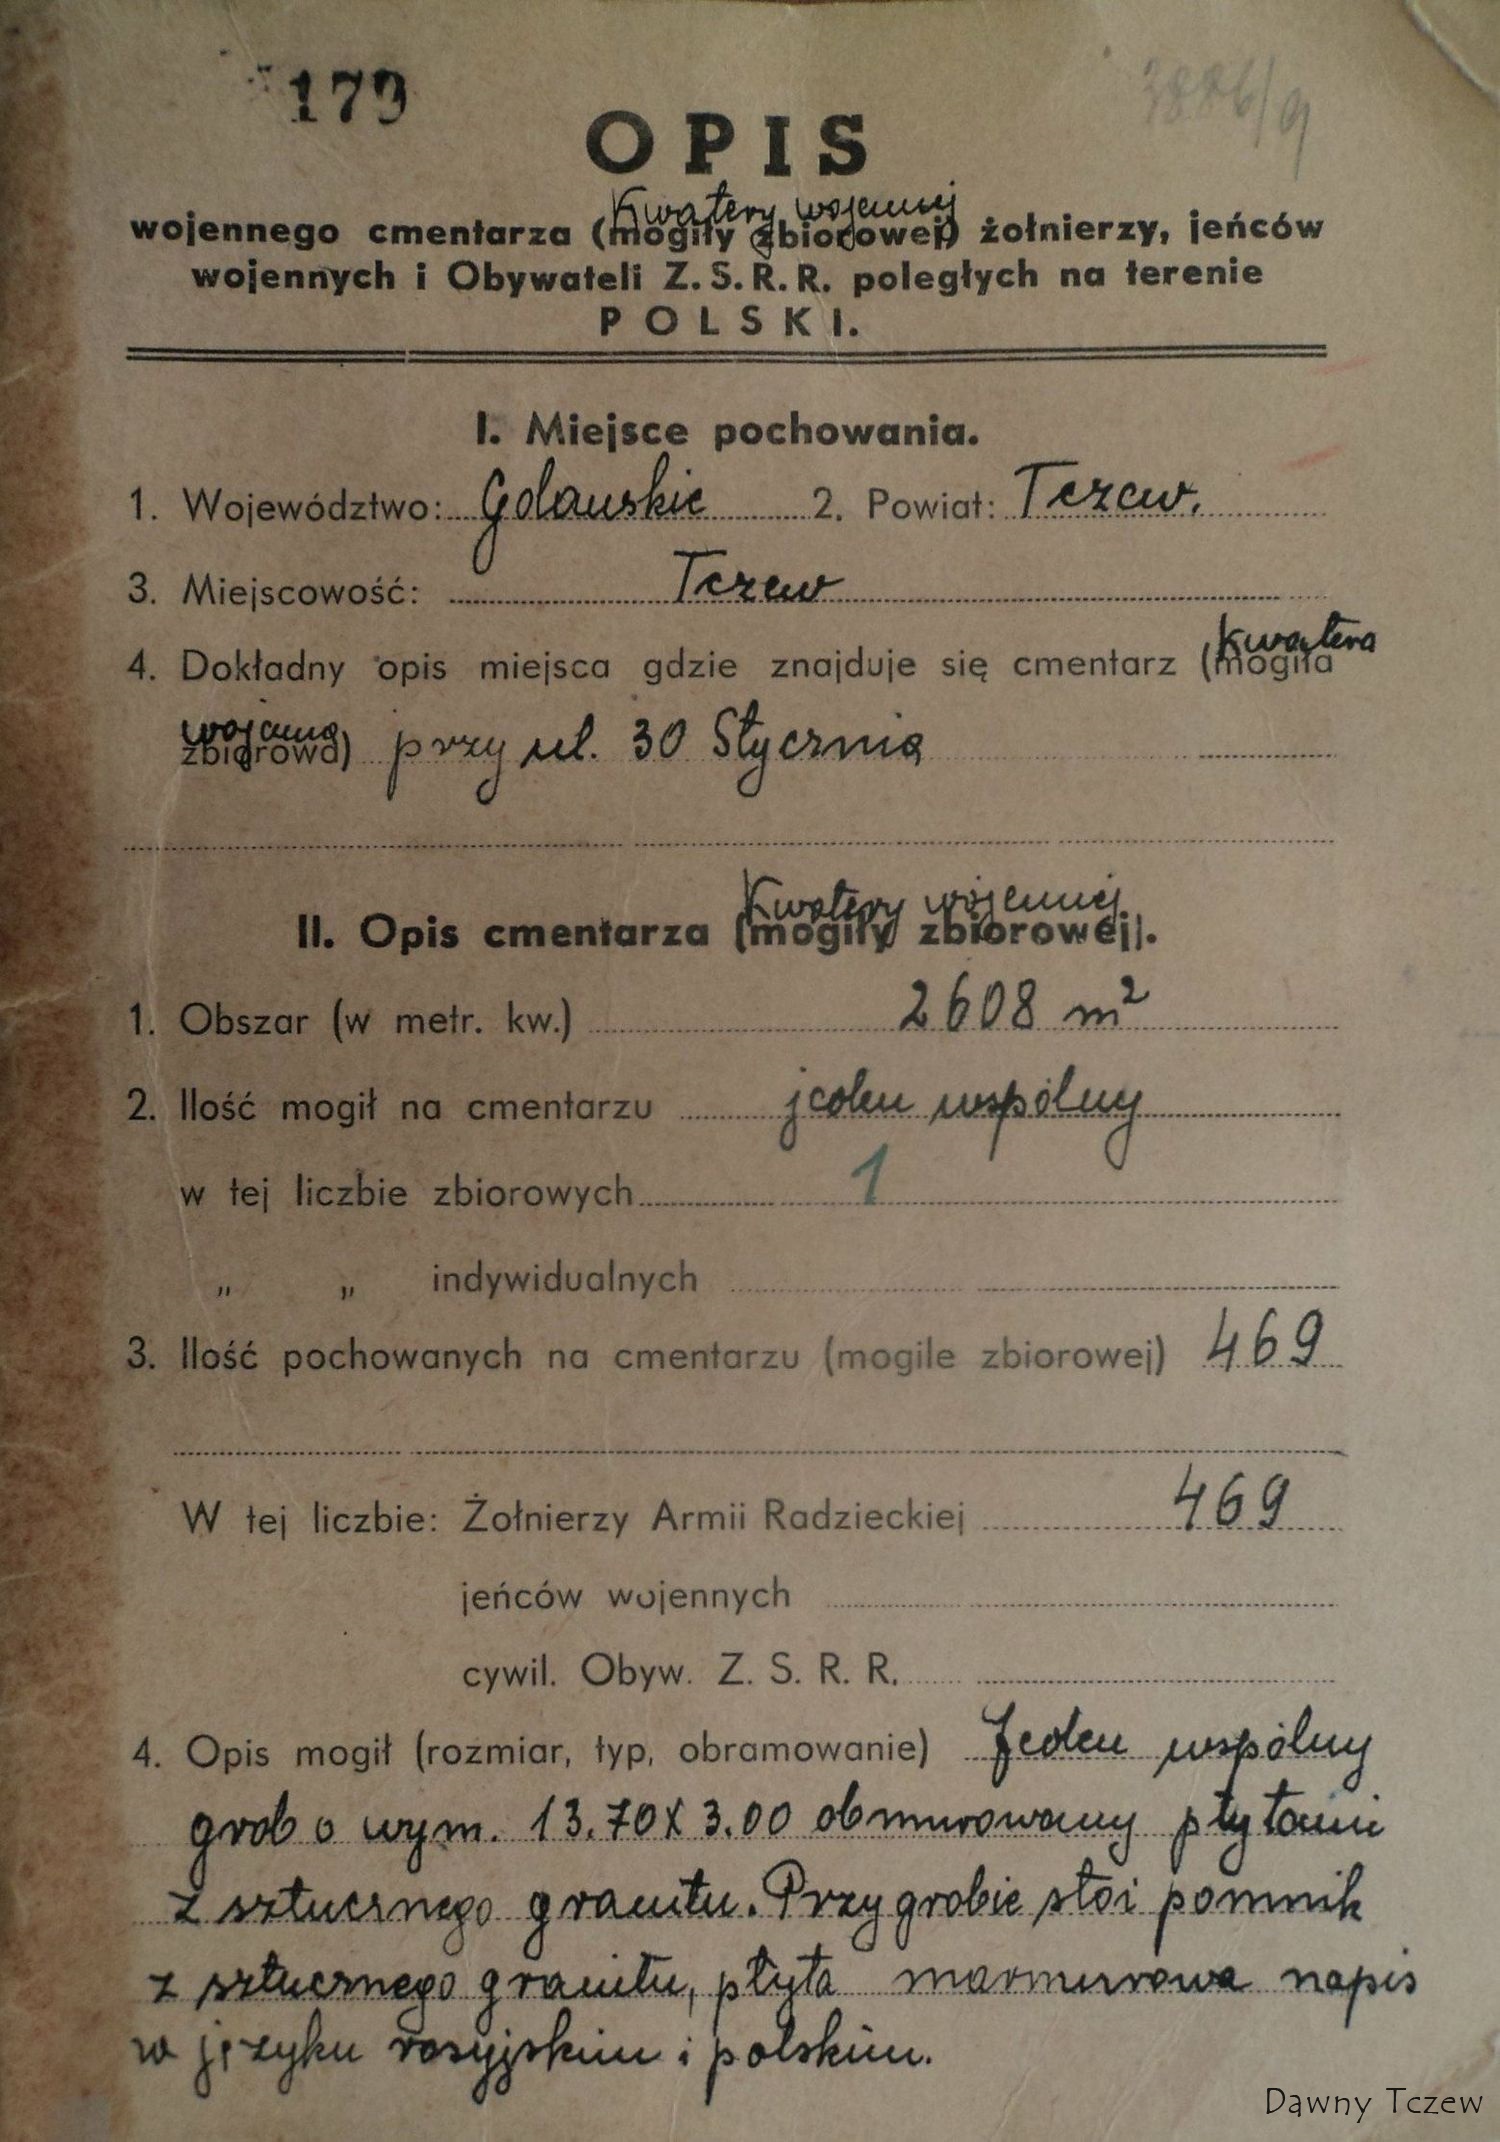 179
3886/9
OPIS
Kwatery wojennej
wojennego cmentarza (mogiły zbiorowej) żołnierzy, jeńców
wojennych i Obywateli Z. S. R. R. poległych na terenie
POLSKI.
I. Miejsce pochowania.
1. Województwo: Gdańskie 2. Powiat: Tczew.
3. Miejscowość: Tczew
kwatera
4. Dokładny opis miejsca gdzie znajduje się cmentarz (mogiła
wojenna
zbiorowa) przy ul. 30 Stycznia
Kwatery wojennej
II. Opis cmentarza (mogiły zbiorowej).
1. Obszar (w metr. kw.) 2608 m²
2. Ilość mogił na cmentarzu jeden wspólny
w tej liczbie zbiorowych 1
„ „ indywidualnych
3. Ilość pochowanych na cmentarzu (mogile zbiorowej) 469
W tej liczbie: Żołnierzy Armii Radzieckiej 469
jeńców wojennych
cywil. Obyw. Z. S. R. R.
4. Opis mogił (rozmiar, typ, obramowanie) Jeden wspólny
grob o wym. 13.70 x 3.00 obmurowany płytami
z sztucznego granitu. Przy grobie stoi pomnik
z sztucznego granitu, płyta marmurowa napis
w języku rosyjskim i polskim.
Dawny Tczew